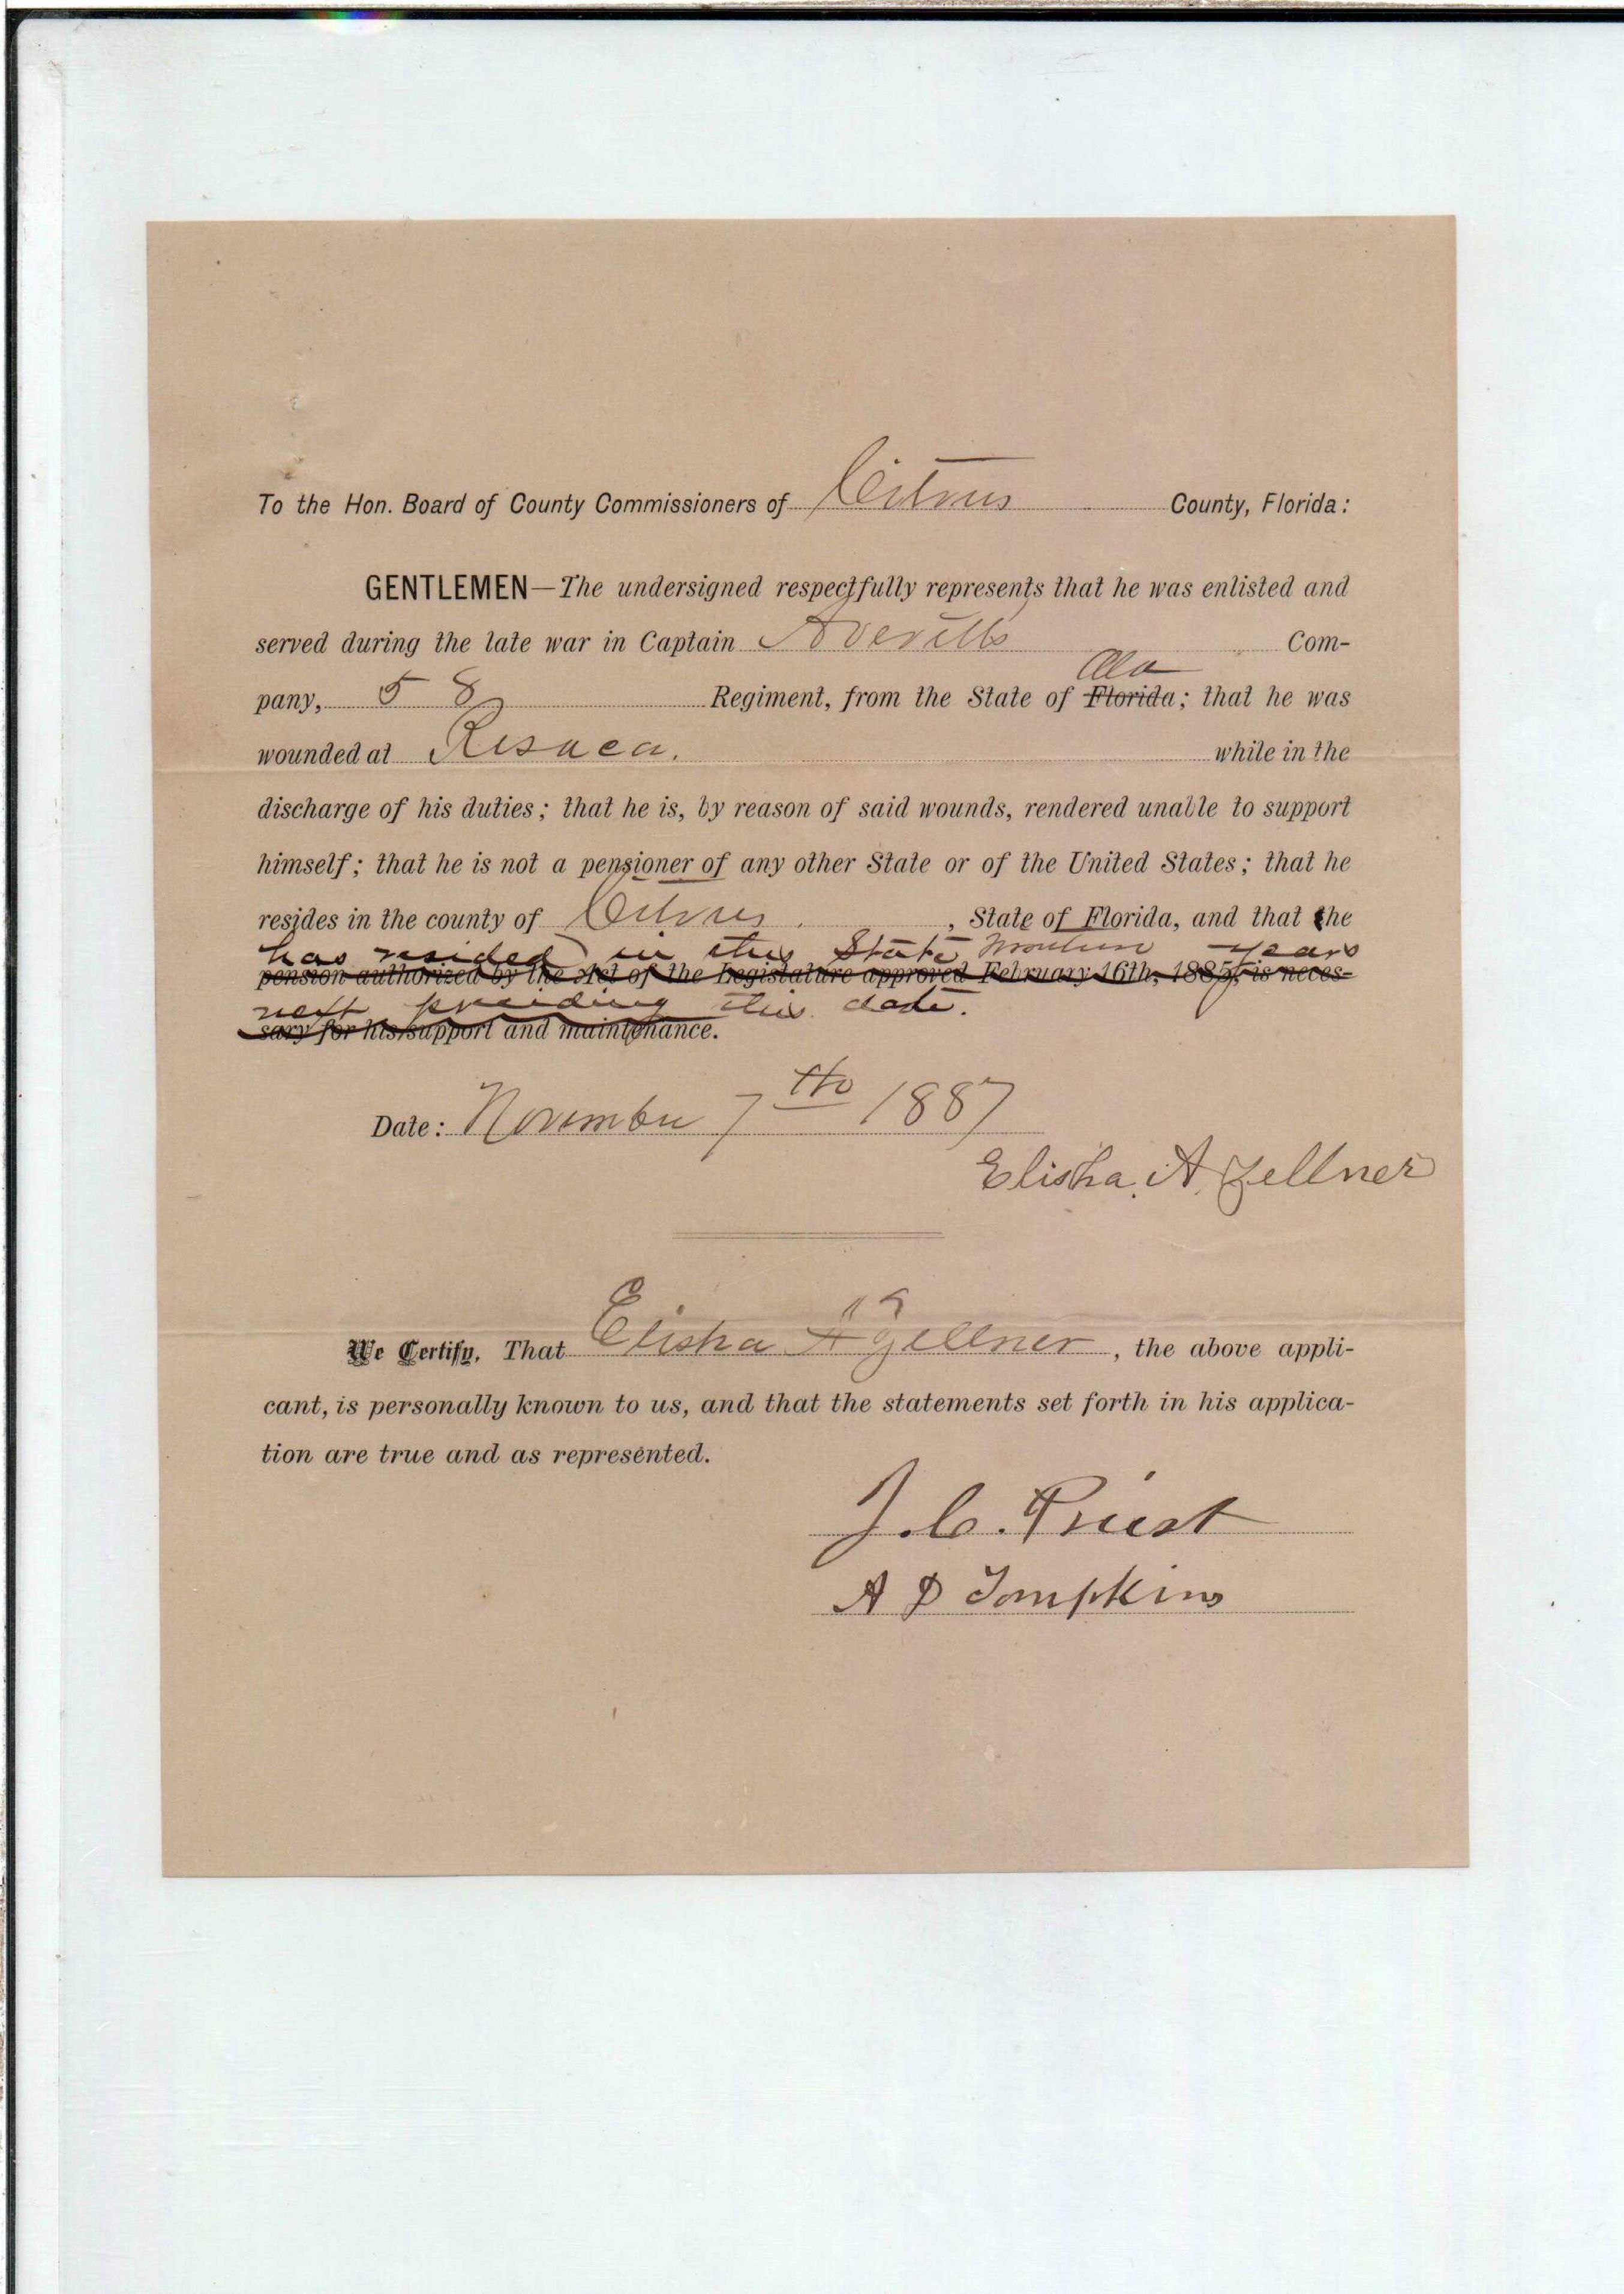 To the Hon. Board of County Commissioners of Citrus County, Florida:
GENTLEMEN—The undersigned respectfully represents that he was enlisted and
served during the late war in Captain Averills Com-
Ala
pany, 58 Regiment, from the State of Florida; that he was
wounded at Resaca. while in the
discharge of his duties; that he is, by reason of said wounds, rendered unable to support
himself; that he is not a pensioner of any other State or of the United States; that he
resides in the county of Citrus, State of Florida, and that the
has resided in this State years
pension authorized by the Act of the Legislature approved February 16th, 1885, is neces-
next preceding this date.
sary for his support and maintenance.
Date: November 7th 1887
Elisha. A. Zellner
We Certify, That Elisha A Zellner, the above appli-
cant, is personally known to us, and that the statements set forth in his applica-
tion are true and as represented.
J. C. Priest
A D Tompkins